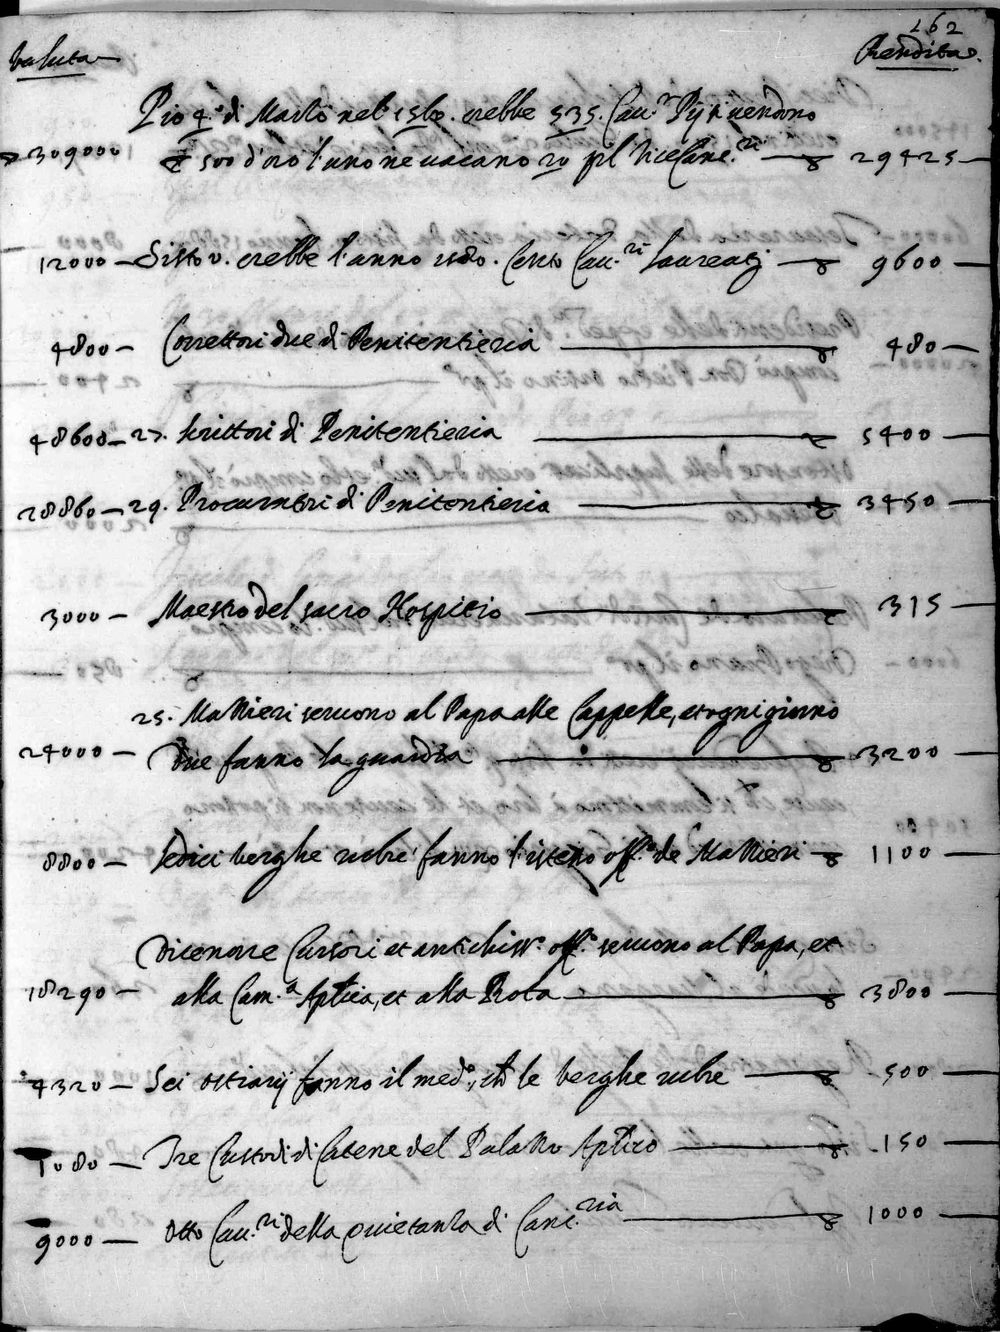 262
Valuta Rendita
Pio 4.º di Marzo nel 1560. erebbe 535. Cau.ri Pij si uendono
309000 500 d'oro l'uno ne uacano 20 pl ViceCanc.ri 29425
12000 Sisto v. erebbe l'anno Cento Cau.ri Laureatj 9600
4800 Correttori due di Penitentieria 480
48600 27. scrittori di Penitentieria 5400
28860 29. Procuratori di Penitentieria 3450
3000 Maestro del sacro Hospitio 315
25. Mazzieri seruono al Papa alle Cappelle, et ogni giorno
24000 Due fanno la guardia 3200
8800 sedici berghe rubre fanno l'istesso off.º de Mazzieri 1100
Dicenoue Cursori et antichiss.º off.º seruono al Papa, et
18290 alla Cam.a Aplica, et alla Rota 3800
4320 Sei ostiarij fanno il med.º, ch le berghe rubre 500
1080 Tre Custodi di Catene del Palazzo Aplico 150
9000 otto Cau.ri della quietanza di Canc.ria 1000